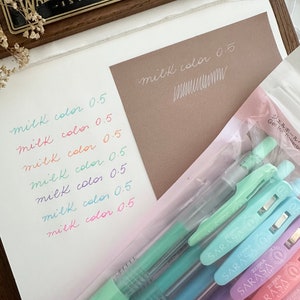 milk color 0.5
milk color 0.5
milk color 0.5
milk color 0.5
milk color 0.5
milk color 0.5
milk color 0.5
milk color 0.5
SARASA
SARASA
SARASA